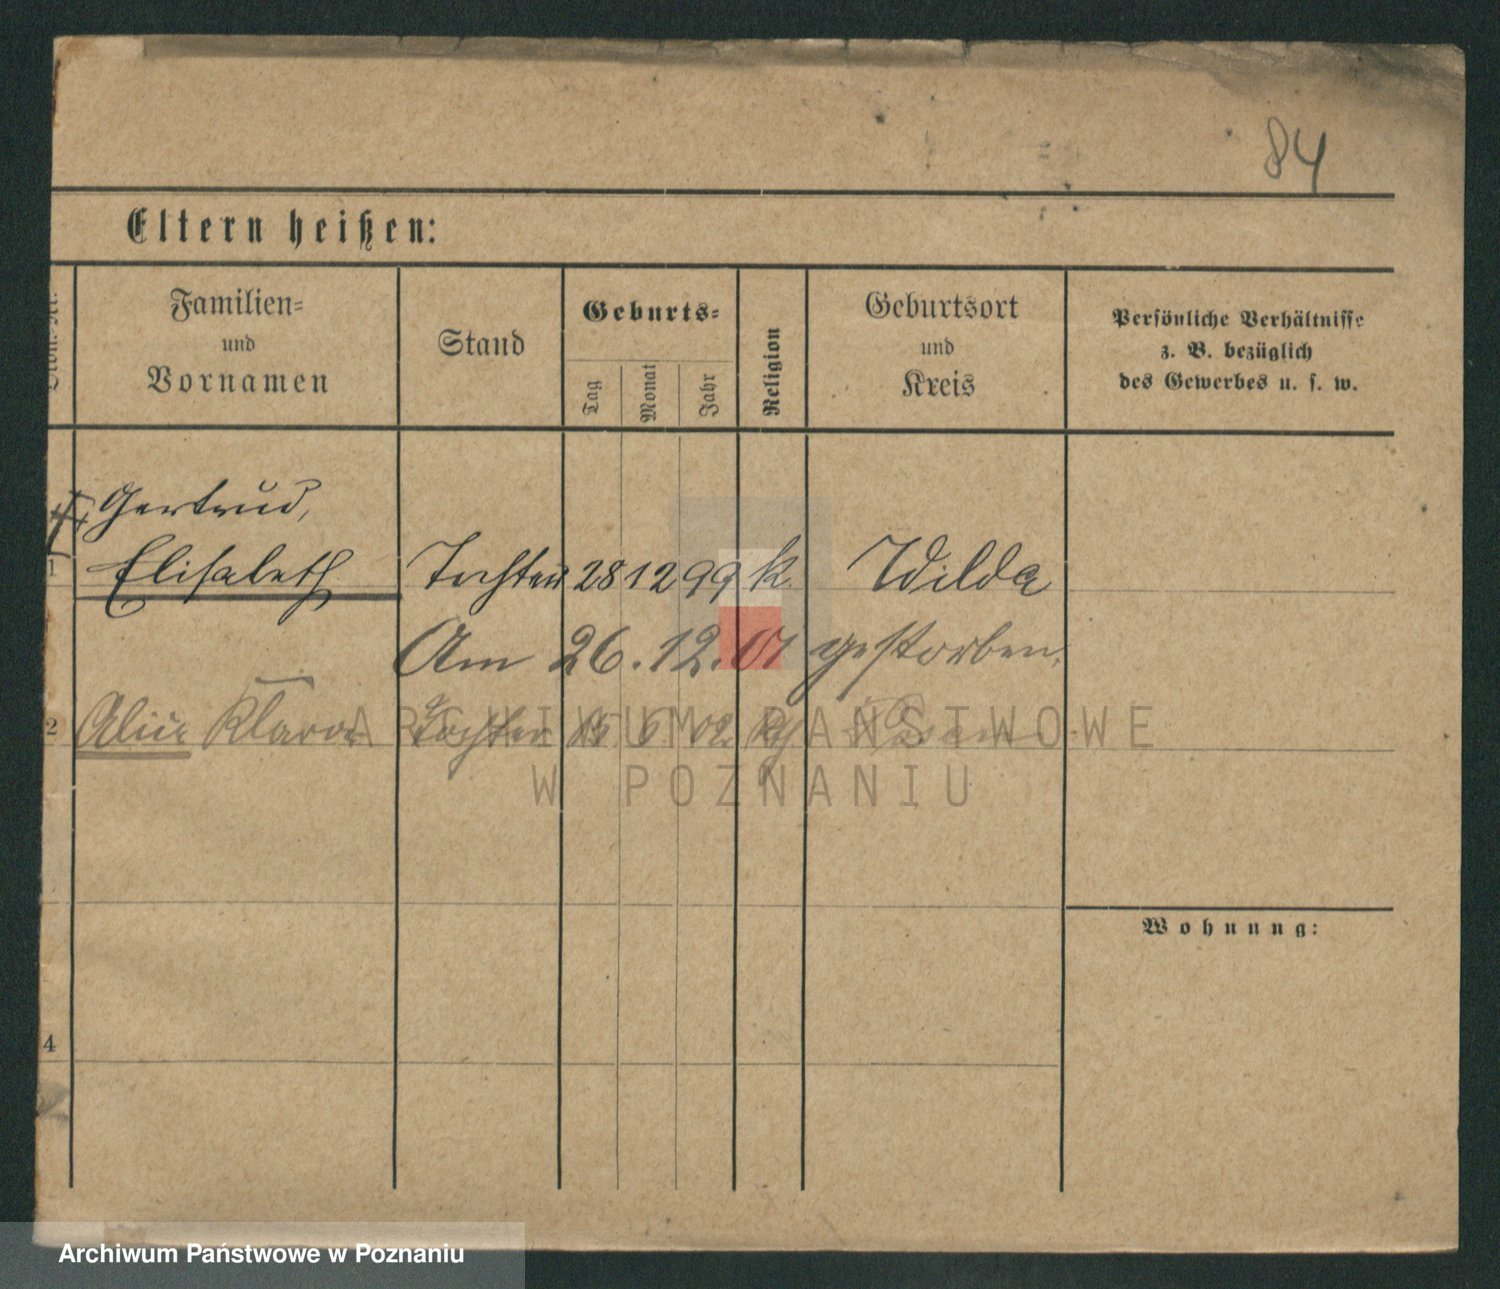 84
Eltern heißen:
Familien-
und
Vornamen
Stand
Geburts-
Tag
Monat
Jahr
Religion
Geburtsort
und
Kreis
Persönliche Verhältnisse
z. B. bezüglich
des Gewerbes u. s. w.
Gertrud,
1 Elisabeth Tochter 28 12 99 k. Wilda
Am 26.12.01 gestorben.
2 Alice Klara Tochter 6 02 Posen
ARCHIWUM PAŃSTWOWE
W POZNANIU
Wohnung:
4
Archiwum Państwowe w Poznaniu